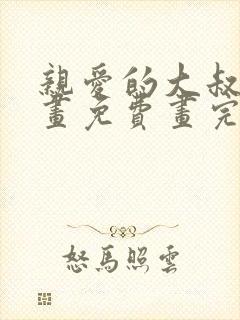 親愛的大叔
畫免費畫完
怒馬照雲